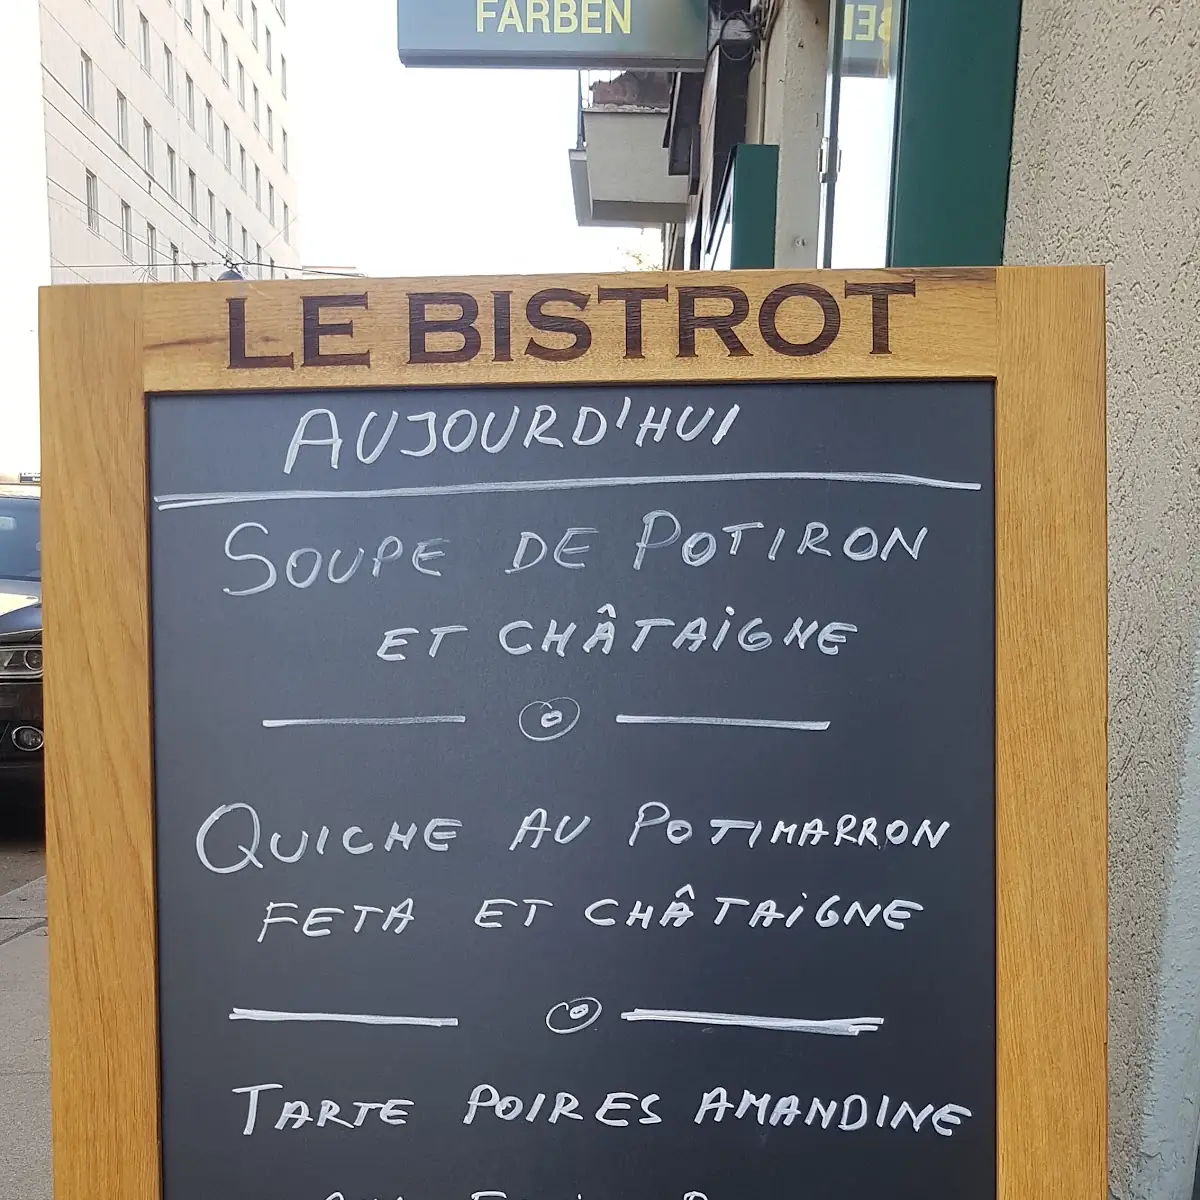 FARBEN
LE BISTROT
AUJOURD'HUI
SOUPE DE POTIRON
ET CHÂTAIGNE
QUICHE AU POTIMARRON
FETA ET CHÂTAIGNE
TARTE POIRES AMANDINE